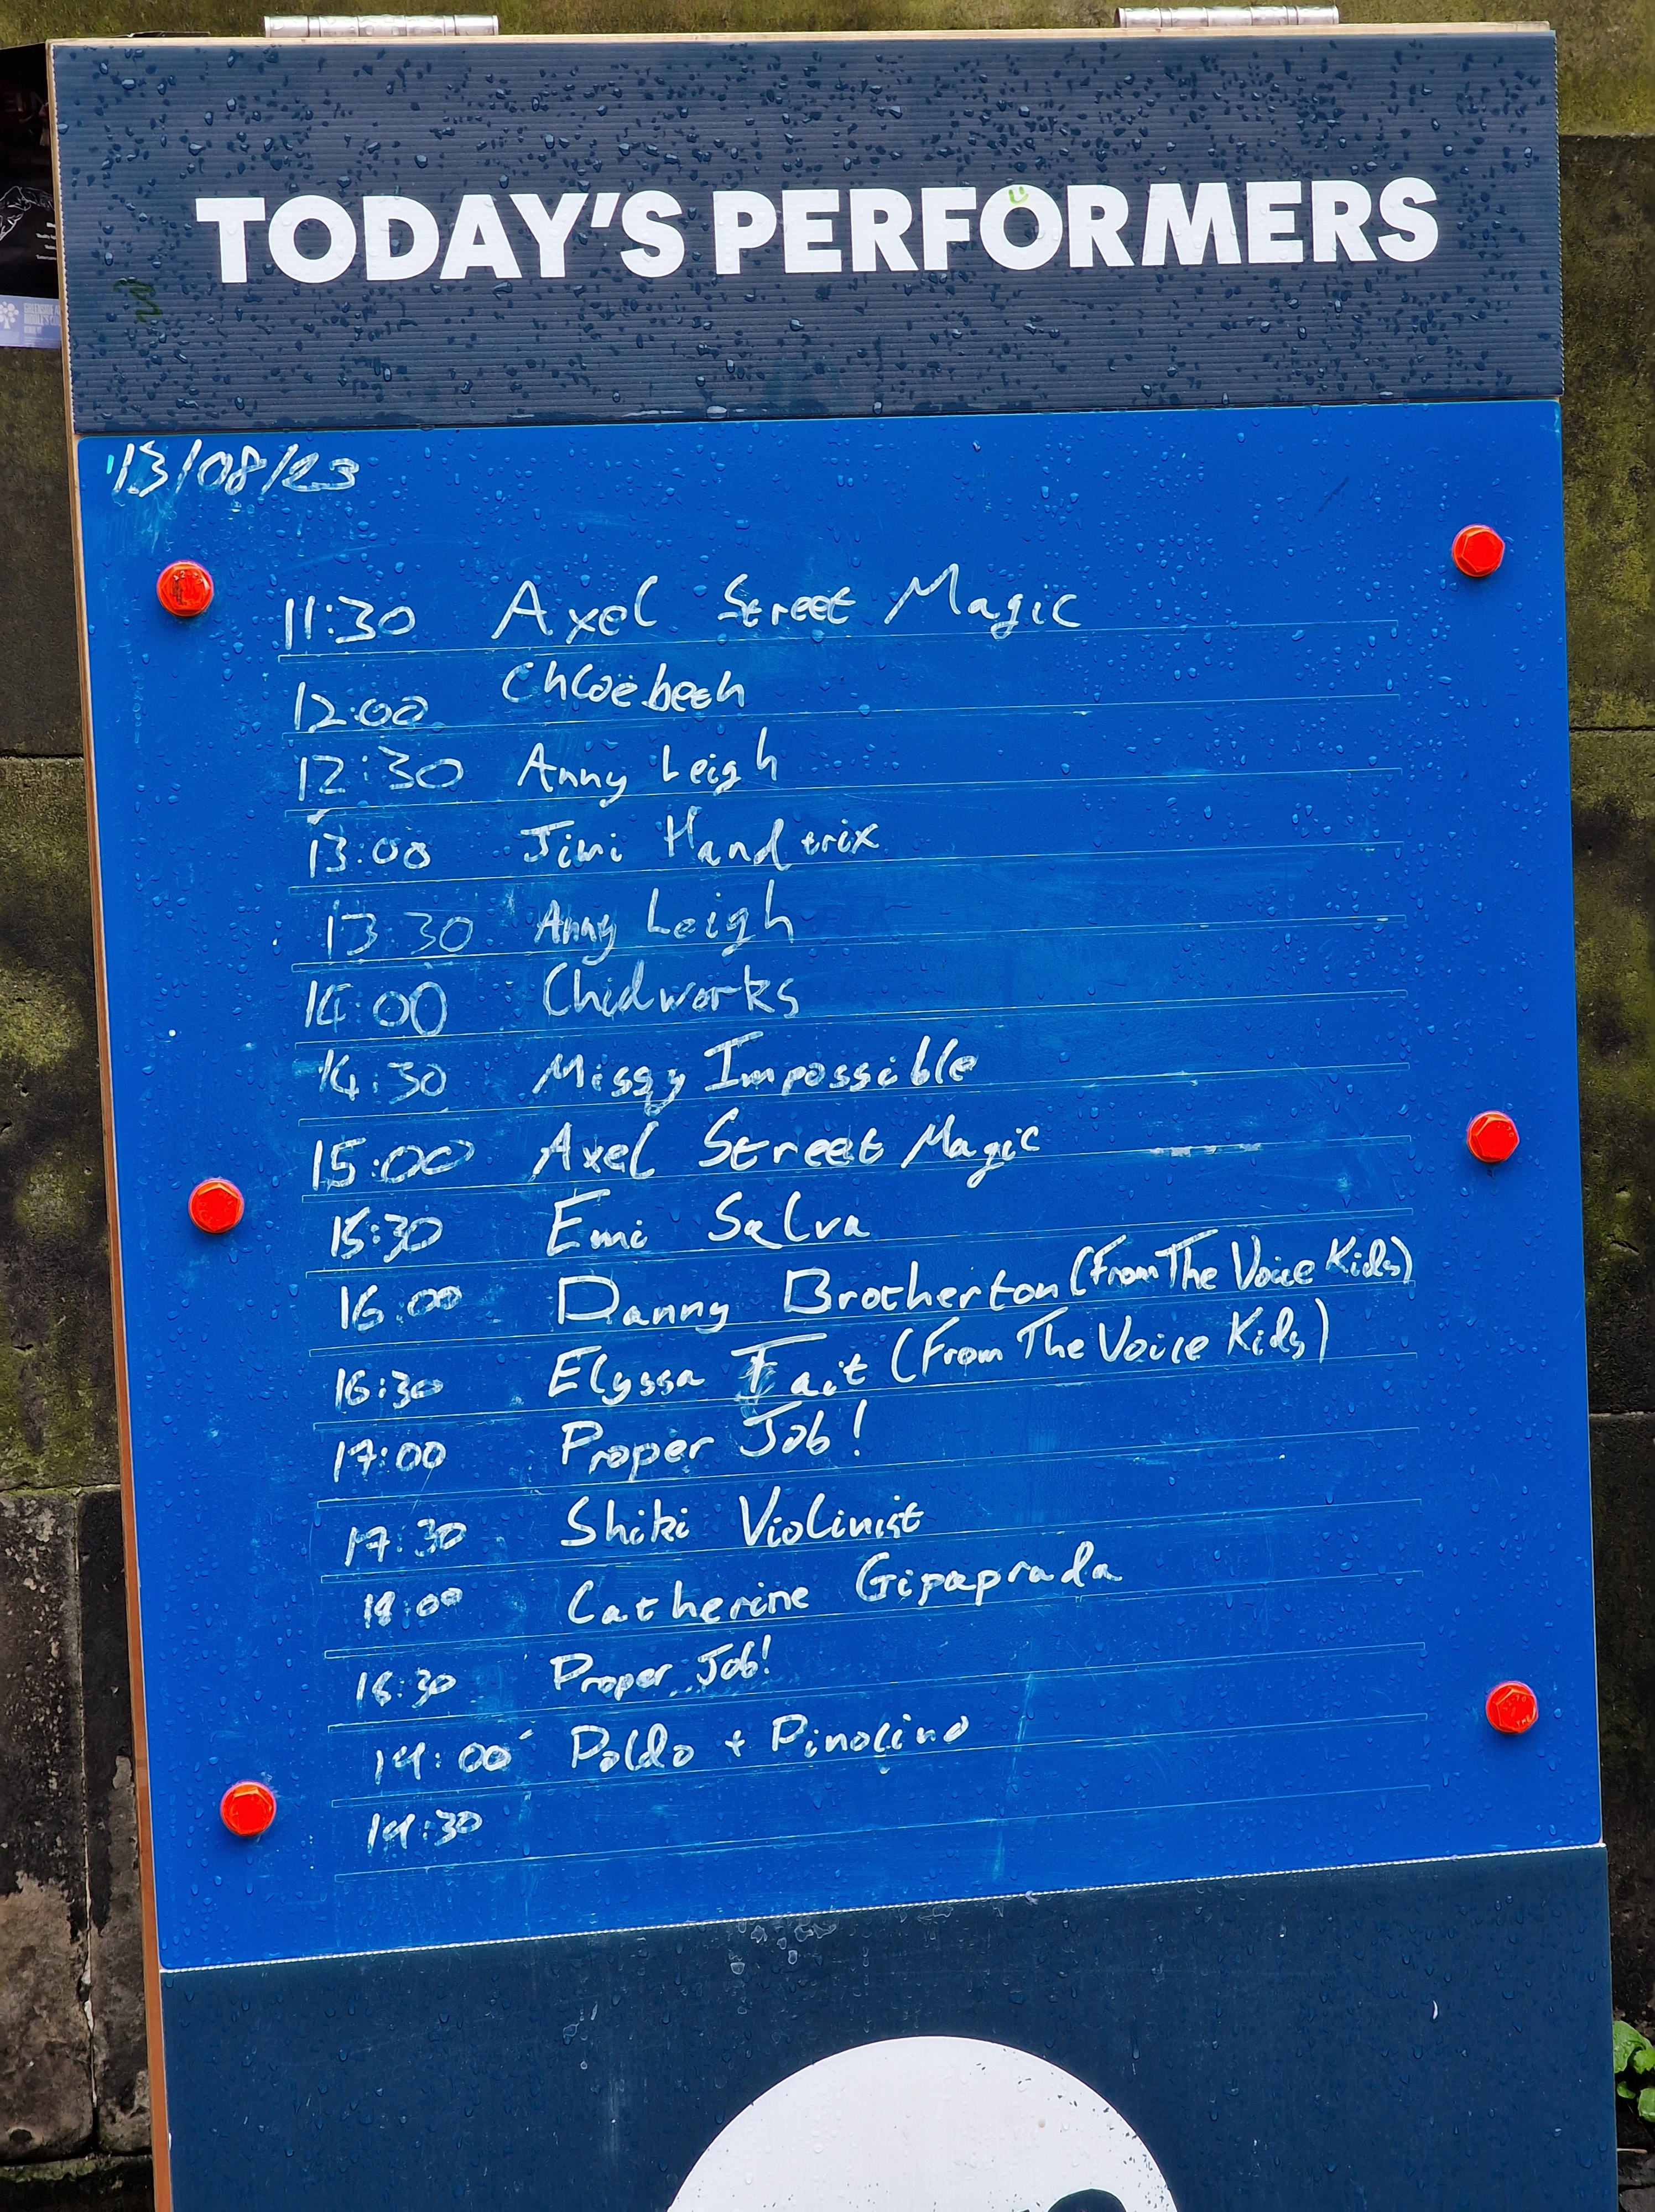 TODAY'S PERFORMERS
13/08/23
11:30 Axel Street Magic
12:00 Chloëbeeh
12:30 Anny Leigh
13:00 Jimi Handtrix
13:30 Anny Leigh
14:00 Chidworks
14:30 Missy Impossible
15:00 Axel Street Magic
15:30 Emi Salva
16:00 Danny Brotherton (From The Voice Kids)
16:30 Elyssa Tait (From The Voice Kids)
17:00 Proper Job!
17:30 Shiki Violinist
18:00 Catherine Gipaprada
18:30 Proper Job!
19:00 Poldo + Pinolino
19:30